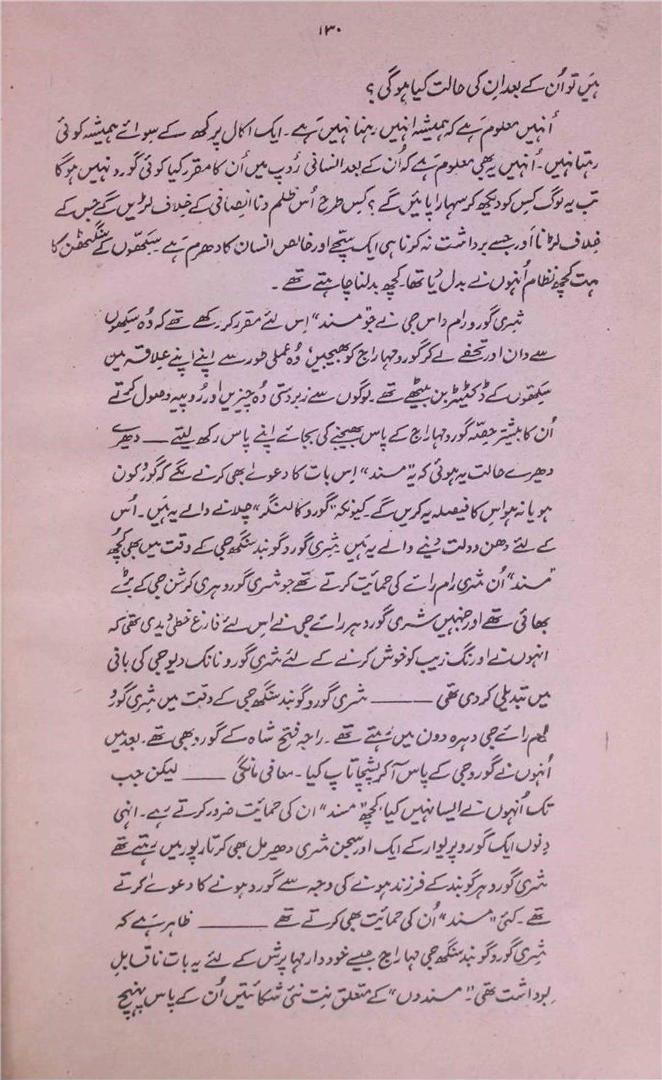 ۱۳۰
ہیں تو اُن کے بعد ان کی حالت کیا ہو گی؟
اُنہیں معلوم ہے کہ ہمیشہ انہیں رہنا نہیں ہے۔ ایک اکال پرکھ کے سوائے ہمیشہ کوئی
رہتا نہیں۔ اُنہیں یہ بھی معلوم ہے کہ اُن کے بعد انسانی رُوپ میں اُن کا مقرر کیا کوئی گورو نہیں ہو گا
تب یہ لوگ کس کو دیکھ کر سہارا پائیں گے؟ کس طرح اُس ظلم و نا انصافی کے خلاف لڑیں گے جس کے
خلاف لڑنا اور جسے برداشت نہ کرنا ہی ایک سچّے اور خالص انسان کا دھرم ہے۔ سکھّوں کے سنگٹھن کا
بہت کچھ نظام اُنہوں نے بدل دیا تھا۔ کچھ بدلنا چاہتے تھے۔
شری گورو رام داس جی نے جو "مسند" اِس لئے مقرر کر رکھے تھے کہ وُہ سکھوں
سے دان اور تحفے لے کر گورو مہاراج کو بھیجیں وُہ عملی طور سے اپنے اپنے علاقہ میں
سکھّوں کے ڈکٹیٹر بن بیٹھے تھے۔ لوگوں سے زبردستی وُہ چیزیں اور رُوپیہ وصول کرتے
اُن کا بیشتر حِصّہ گورو مہاراج کے پاس بھیجنے کی بجائے اپنے پاس رکھ لیتے —— دھیرے
دھیرے حالت یہ ہوئی کہ یہ "مسند" اِس بات کا دعوےٰ بھی کرنے لگے کہ گورُو کون
ہو یا نہ ہو اس کا فیصلہ یہ کریں گے۔ کیونکہ "گورو کا لنگر" چلانے والے یہ ہیں۔ اُس
کے لئے دھن دولت دینے والے یہ ہیں شری گورو گوبند سنگھ جی کے وقت میں بھی کُچھ
"مسند" اُن شری رام رائے کی حمائیت کرتے تھے جو شری گورو ہری کرشن جی کے بڑے
بھائی تھے اور جنہیں شری گورو ہر رائے جی نے اس لئے فارغ خطی دیدی تھی کہ
انہوں نے اورنگ زیب کو خوش کرنے کے لئے شری گورو نانک دیو جی کی بانی
میں تبدیلی کر دی تھی ——— شری گورو گوبند سنگھ جی کے وقت میں شری گورُو
رام رائے جی دہرہ دون میں رہتے تھے۔ راجہ فتح شاہ کے گورو بھی تھے۔ بعد میں
اُنہوں نے گورو جی کے پاس آ کر پشچاتاپ کیا۔ معافی مانگی —— لیکن جب
تک اُنہوں نے ایسا نہیں کیا، کچھ "مسند" ان کی حمائیت ضرور کرتے رہے۔ انہی
دِنوں ایک گورو پریوار کے ایک اور سجن شری دھیر مل بھی کرتارپور میں رہتے تھے
شری گورو ہر گوبند کے فرزند ہونے کی وجہ سے گورو ہونے کا دعوےٰ کرتے
تھے۔ کئی "مسند" اُن کی حمائیت بھی کرتے تھے ——— ظاہر ہے کہ
شری گورو گوبند سنگھ جی مہاراج جیسے خوددار مہاپرش کے لئے یہ بات ناقابلِ
برداشت تھی۔ "مسندوں" کے متعلق نِت نئی شکائتیں اُن کے پاس پہنچ